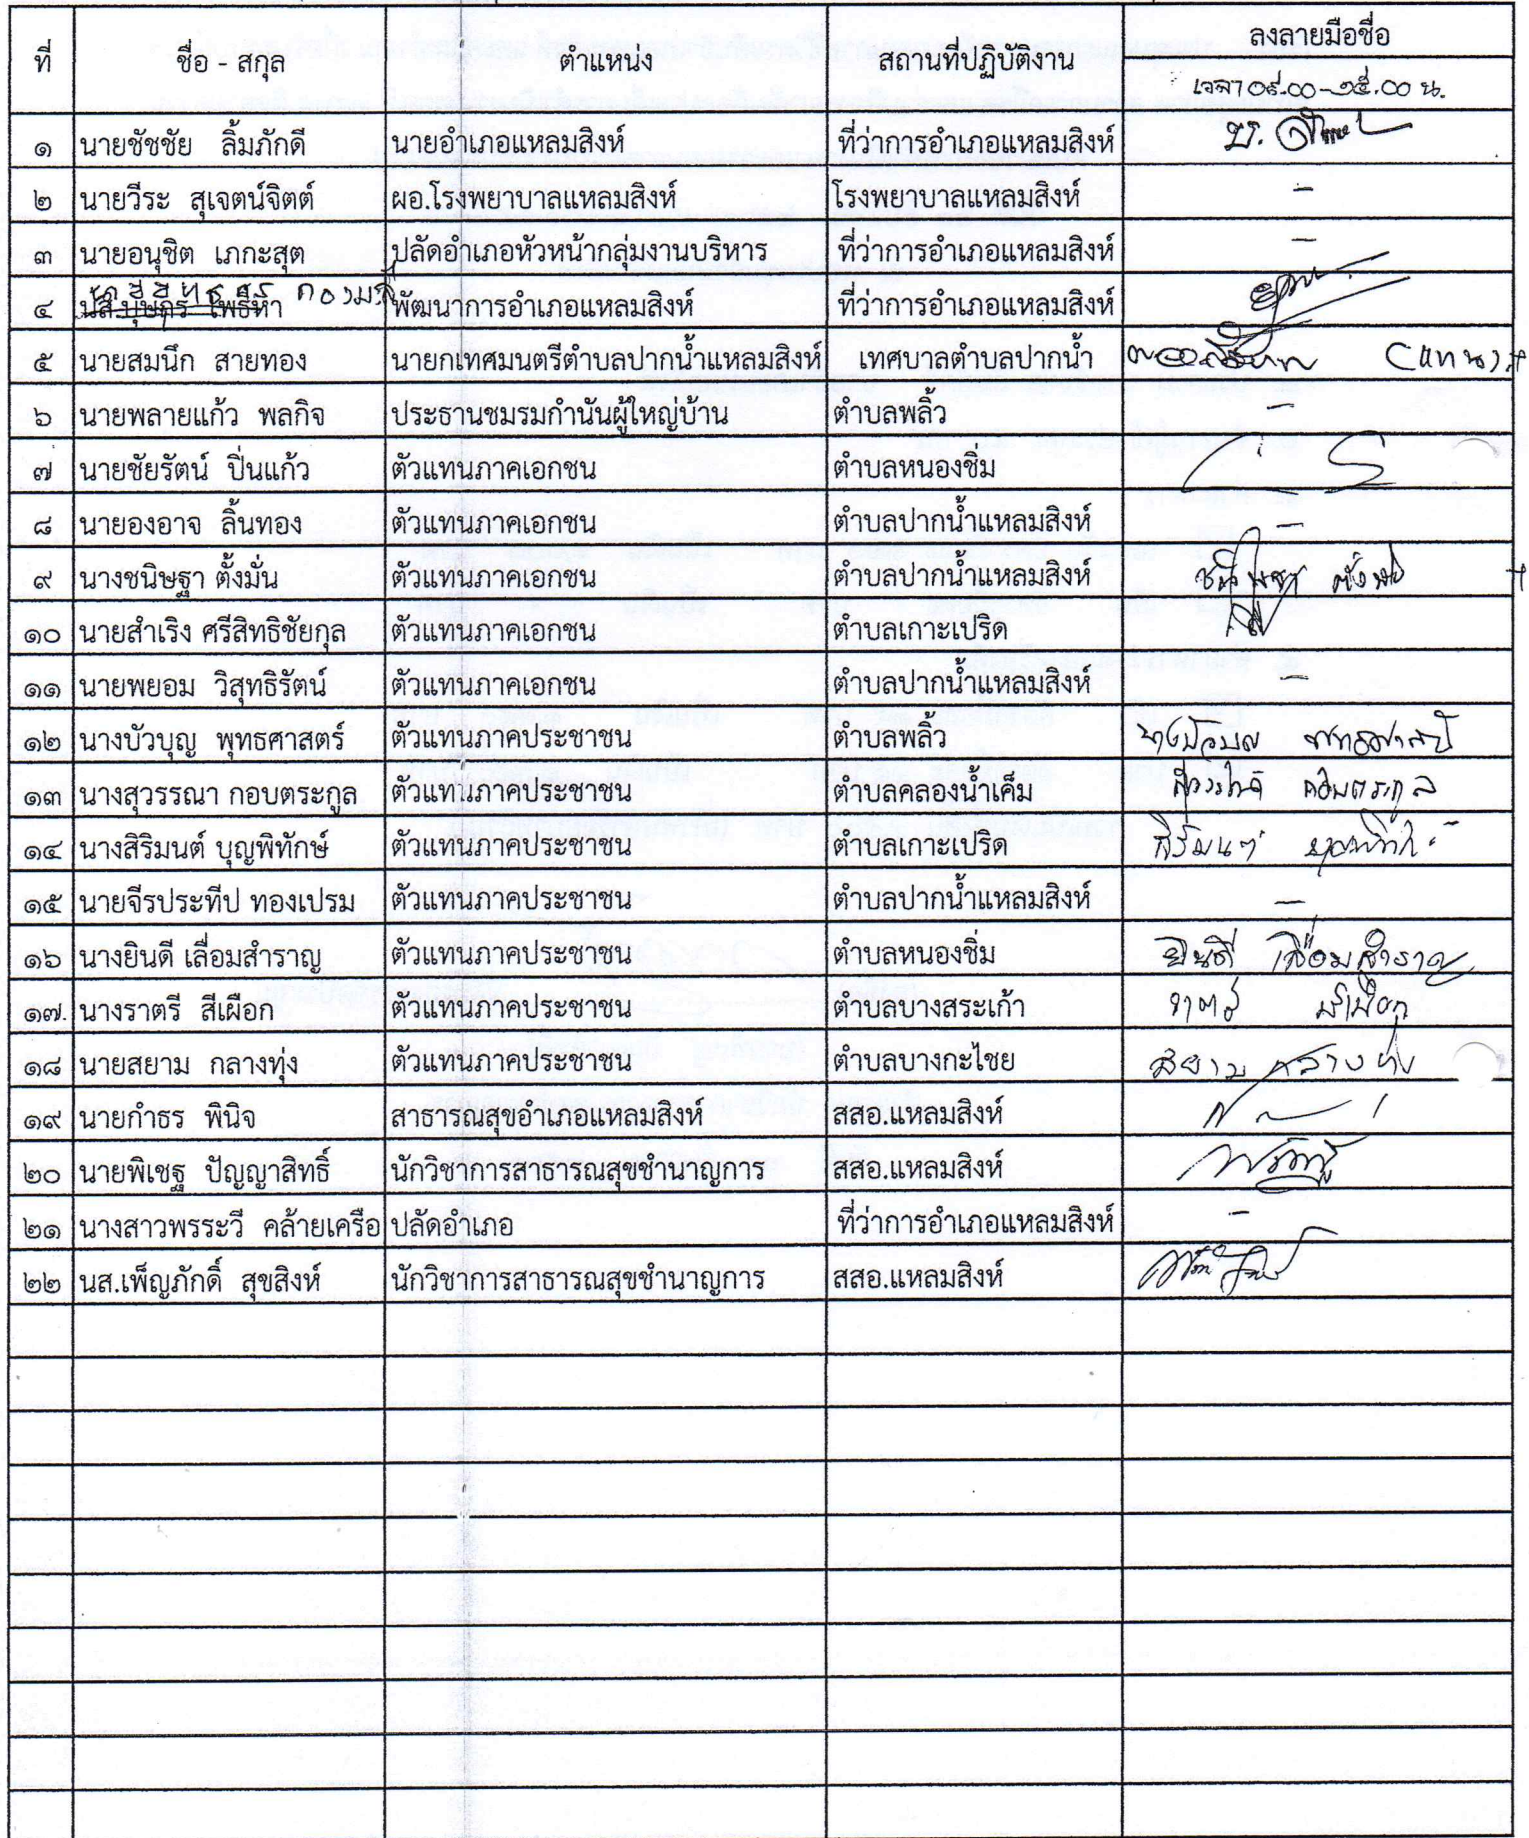 ที่ ชื่อ - สกุล ตำแหน่ง สถานที่ปฏิบัติงาน ลงลายมือชื่อ
เวลา ๐๙.๐๐-๑๕.๐๐ น.
๑ นายชัชชัย ลิ้มภักดี นายอำเภอแหลมสิงห์ ที่ว่าการอำเภอแหลมสิงห์
๒ นายวีระ สุเจตน์จิตต์ ผอ.โรงพยาบาลแหลมสิงห์ โรงพยาบาลแหลมสิงห์ –
๓ นายอนุชิต เภกะสุต ปลัดอำเภอหัวหน้ากลุ่มงานบริหาร ที่ว่าการอำเภอแหลมสิงห์ –
๔ พัฒนาการอำเภอแหลมสิงห์ ที่ว่าการอำเภอแหลมสิงห์
๕ นายสมนึก สายทอง นายกเทศมนตรีตำบลปากน้ำแหลมสิงห์ เทศบาลตำบลปากน้ำ (แทน)
๖ นายพลายแก้ว พลกิจ ประธานชมรมกำนันผู้ใหญ่บ้าน ตำบลพลิ้ว –
๗ นายชัยรัตน์ ปิ่นแก้ว ตัวแทนภาคเอกชน ตำบลหนองชิ่ม
๘ นายองอาจ ลิ้นทอง ตัวแทนภาคเอกชน ตำบลปากน้ำแหลมสิงห์ –
๙ นางชนิษฐา ตั้งมั่น ตัวแทนภาคเอกชน ตำบลปากน้ำแหลมสิงห์ ชนิษฐา ตั้งมั่น
๑๐ นายสำเริง ศรีสิทธิชัยกุล ตัวแทนภาคเอกชน ตำบลเกาะเปริด
๑๑ นายพยอม วิสุทธิรัตน์ ตัวแทนภาคเอกชน ตำบลปากน้ำแหลมสิงห์ –
๑๒ นางบัวบุญ พุทธศาสตร์ ตัวแทนภาคประชาชน ตำบลพลิ้ว
๑๓ นางสุวรรณา กอบตระกูล ตัวแทนภาคประชาชน ตำบลคลองน้ำเค็ม สุวรรณา กอบตระกูล
๑๔ นางสิริมนต์ บุญพิทักษ์ ตัวแทนภาคประชาชน ตำบลเกาะเปริด สิริมนต์ บุญพิทักษ์
๑๕ นายจีรประทีป ทองเปรม ตัวแทนภาคประชาชน ตำบลปากน้ำแหลมสิงห์ –
๑๖ นางยินดี เลื่อมสำราญ ตัวแทนภาคประชาชน ตำบลหนองชิ่ม ยินดี เลื่อมสำราญ
๑๗. นางราตรี สีเผือก ตัวแทนภาคประชาชน ตำบลบางสระเก้า ราตรี สีเผือก
๑๘ นายสยาม กลางทุ่ง ตัวแทนภาคประชาชน ตำบลบางกะไชย สยาม กลางทุ่ง
๑๙ นายกำธร พินิจ สาธารณสุขอำเภอแหลมสิงห์ สสอ.แหลมสิงห์
๒๐ นายพิเชฐ ปัญญาสิทธิ์ นักวิชาการสาธารณสุขชำนาญการ สสอ.แหลมสิงห์
๒๑ นางสาวพรระวี คล้ายเครือ ปลัดอำเภอ ที่ว่าการอำเภอแหลมสิงห์ –
๒๒ นส.เพ็ญภักดิ์ สุขสิงห์ นักวิชาการสาธารณสุขชำนาญการ สสอ.แหลมสิงห์